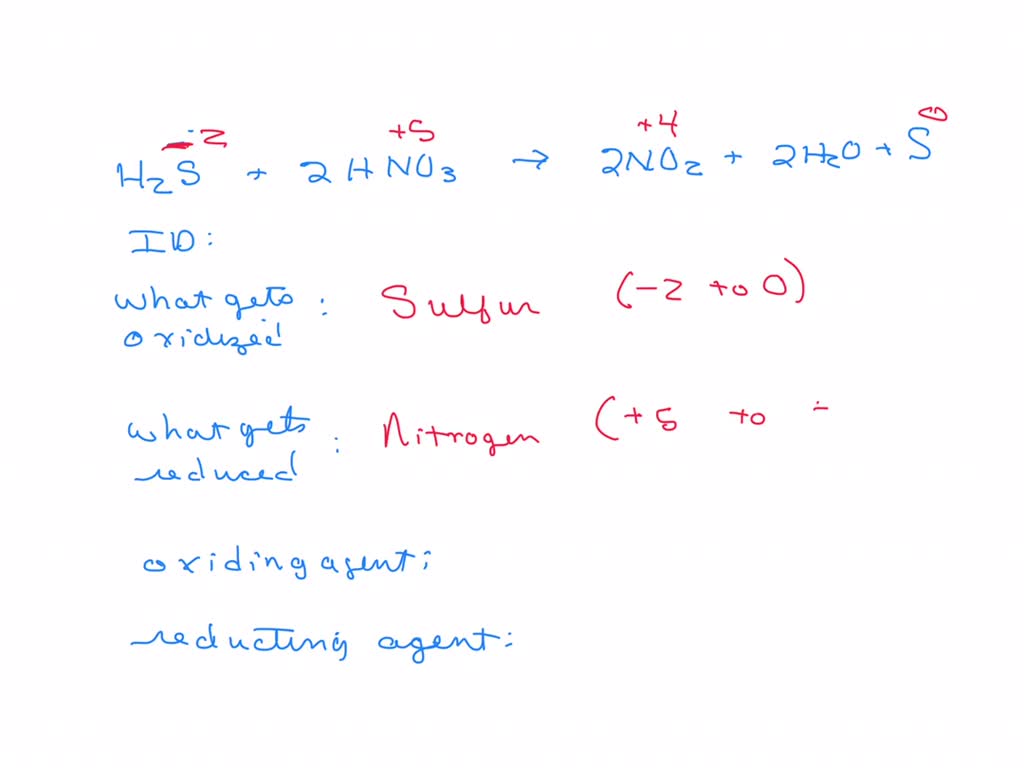 -2 +5 +4 0
H2S + 2HNO3 → 2NO2 + 2H2O + S
ID:
what gets oxidized : Sulfur (-2 to 0)
what gets reduced : Nitrogen (+5 to
oxiding agent:
reducting agent: